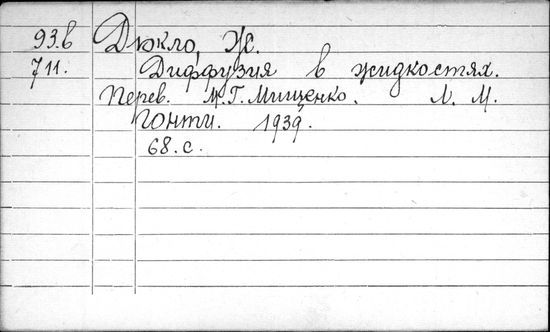 93.в Дюкло, Ж.
711. Диффузия в жидкостях.
Перев. М.Г. Мищенко. Л. М.
ГОНТИ. 1939.
68. с.